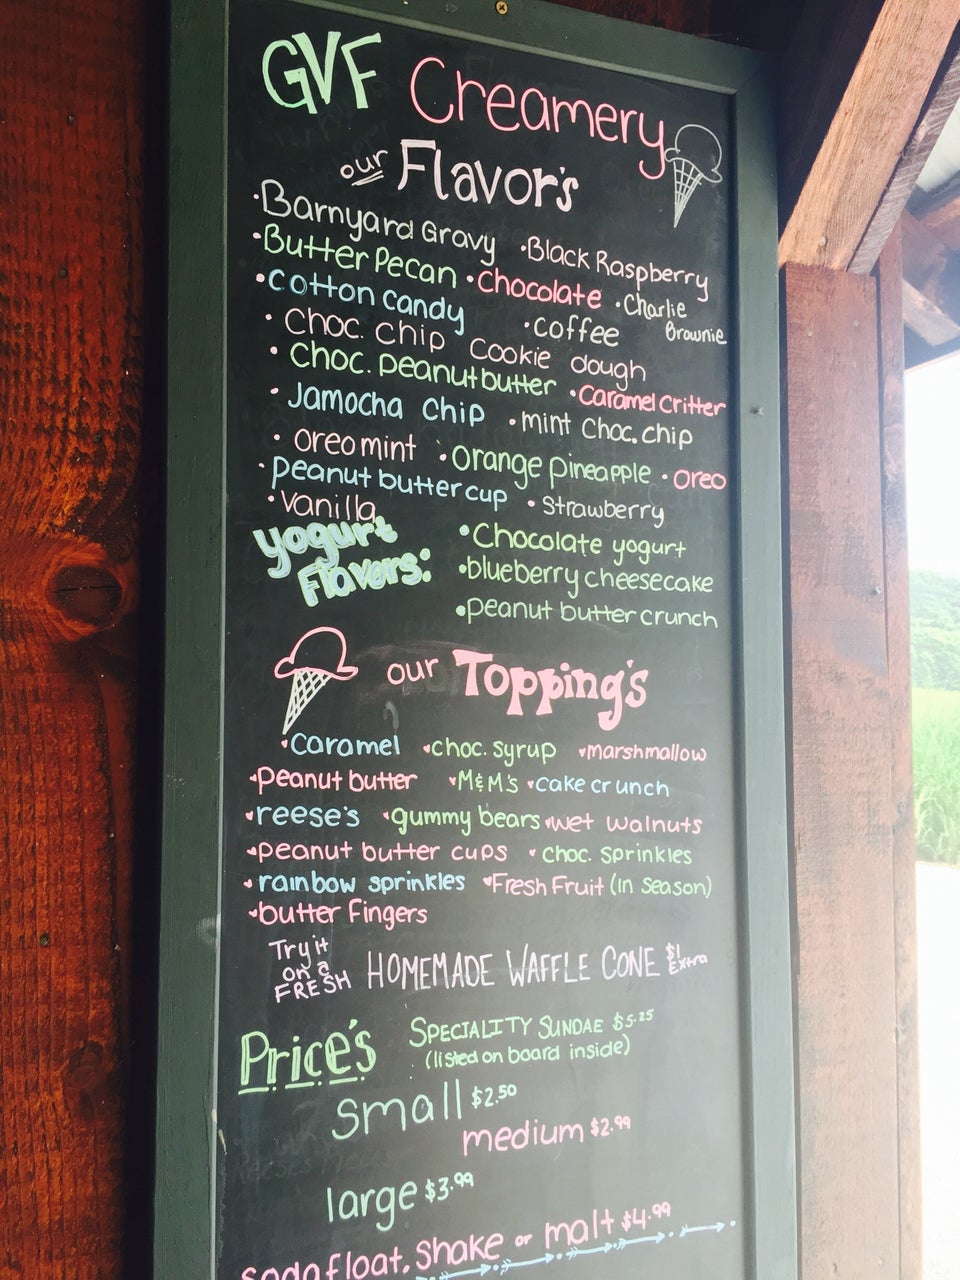 GVF Creamery
our Flavor's
·Barnyard Gravy ·Black Raspberry
·Butter Pecan ·Chocolate ·Charlie Brownie
·cotton candy ·coffee
·choc. chip cookie dough
·choc. peanut butter ·caramel critter
·Jamocha chip ·mint choc. chip
·oreo mint ·orange pineapple ·oreo
·peanut butter cup ·strawberry
·vanilla
yogurt Flavors:
·Chocolate yogurt
·blueberry cheesecake
·peanut butter crunch
our Topping's
·caramel ·choc. syrup ·marshmallow
·peanut butter ·M&M's ·cake crunch
·reese's ·gummy bears ·wet walnuts
·peanut butter cups ·choc. sprinkles
·rainbow sprinkles ·Fresh Fruit (in season)
·butter fingers
Try it on a FRESH HOMEMADE WAFFLE CONE $1 Extra
Price's
SPECIALITY SUNDAE $5.25
(listed on board inside)
small $2.50
medium $2.99
large $3.99
soda float, shake or malt $4.99